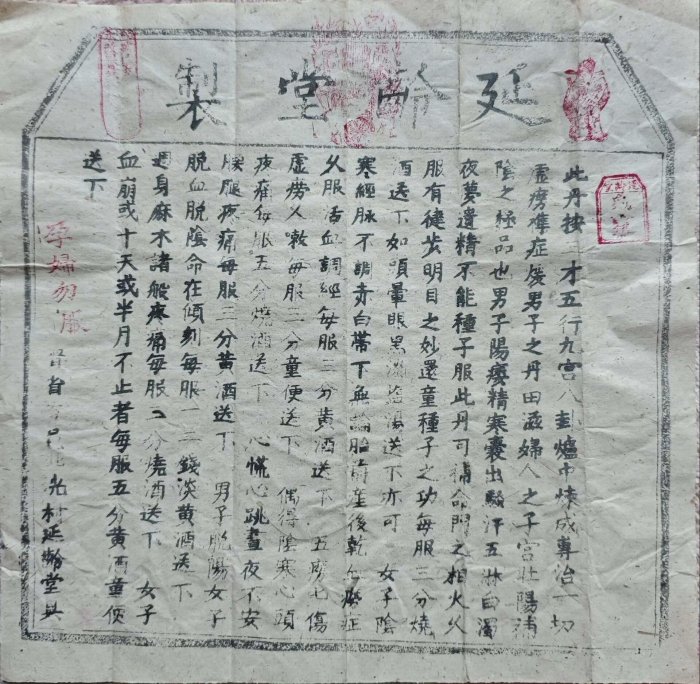 延齡堂製
此丹按三才五行九宮八卦爐中煉成專治一切
虛癆雜症煖男子之丹田滋婦人之子宮壯陽補
陰之極品也男子陽痿精寒囊出黏汗五淋白濁
夜夢遺精不能種子服此丹可補命門之相火久
服有徒步明目之妙還童種子之功每服三分燒
酒送下如頭暈眼黑淡鹽湯送下亦可 女子陰
寒經脉不調赤白帶下無論胎前產後乾血癆症
久服活血調經每服三分黃酒送下 五癆七傷
虛癆久嗽每服三分童便送下 偶得陰寒心頭
疼痛每服五分燒酒送下 心慌心跳晝夜不安
腰腿疼痛每服三分黃酒送下 男子脫陽女子
脫血脫陰命在傾刻每服一二錢淡黃酒送下
週身麻木諸般疼痛每服二分燒酒送下 女子
血崩或十天或半月不止者每服五分黃酒童便
送下
孕婦勿服
省 邑 光村延齡堂具